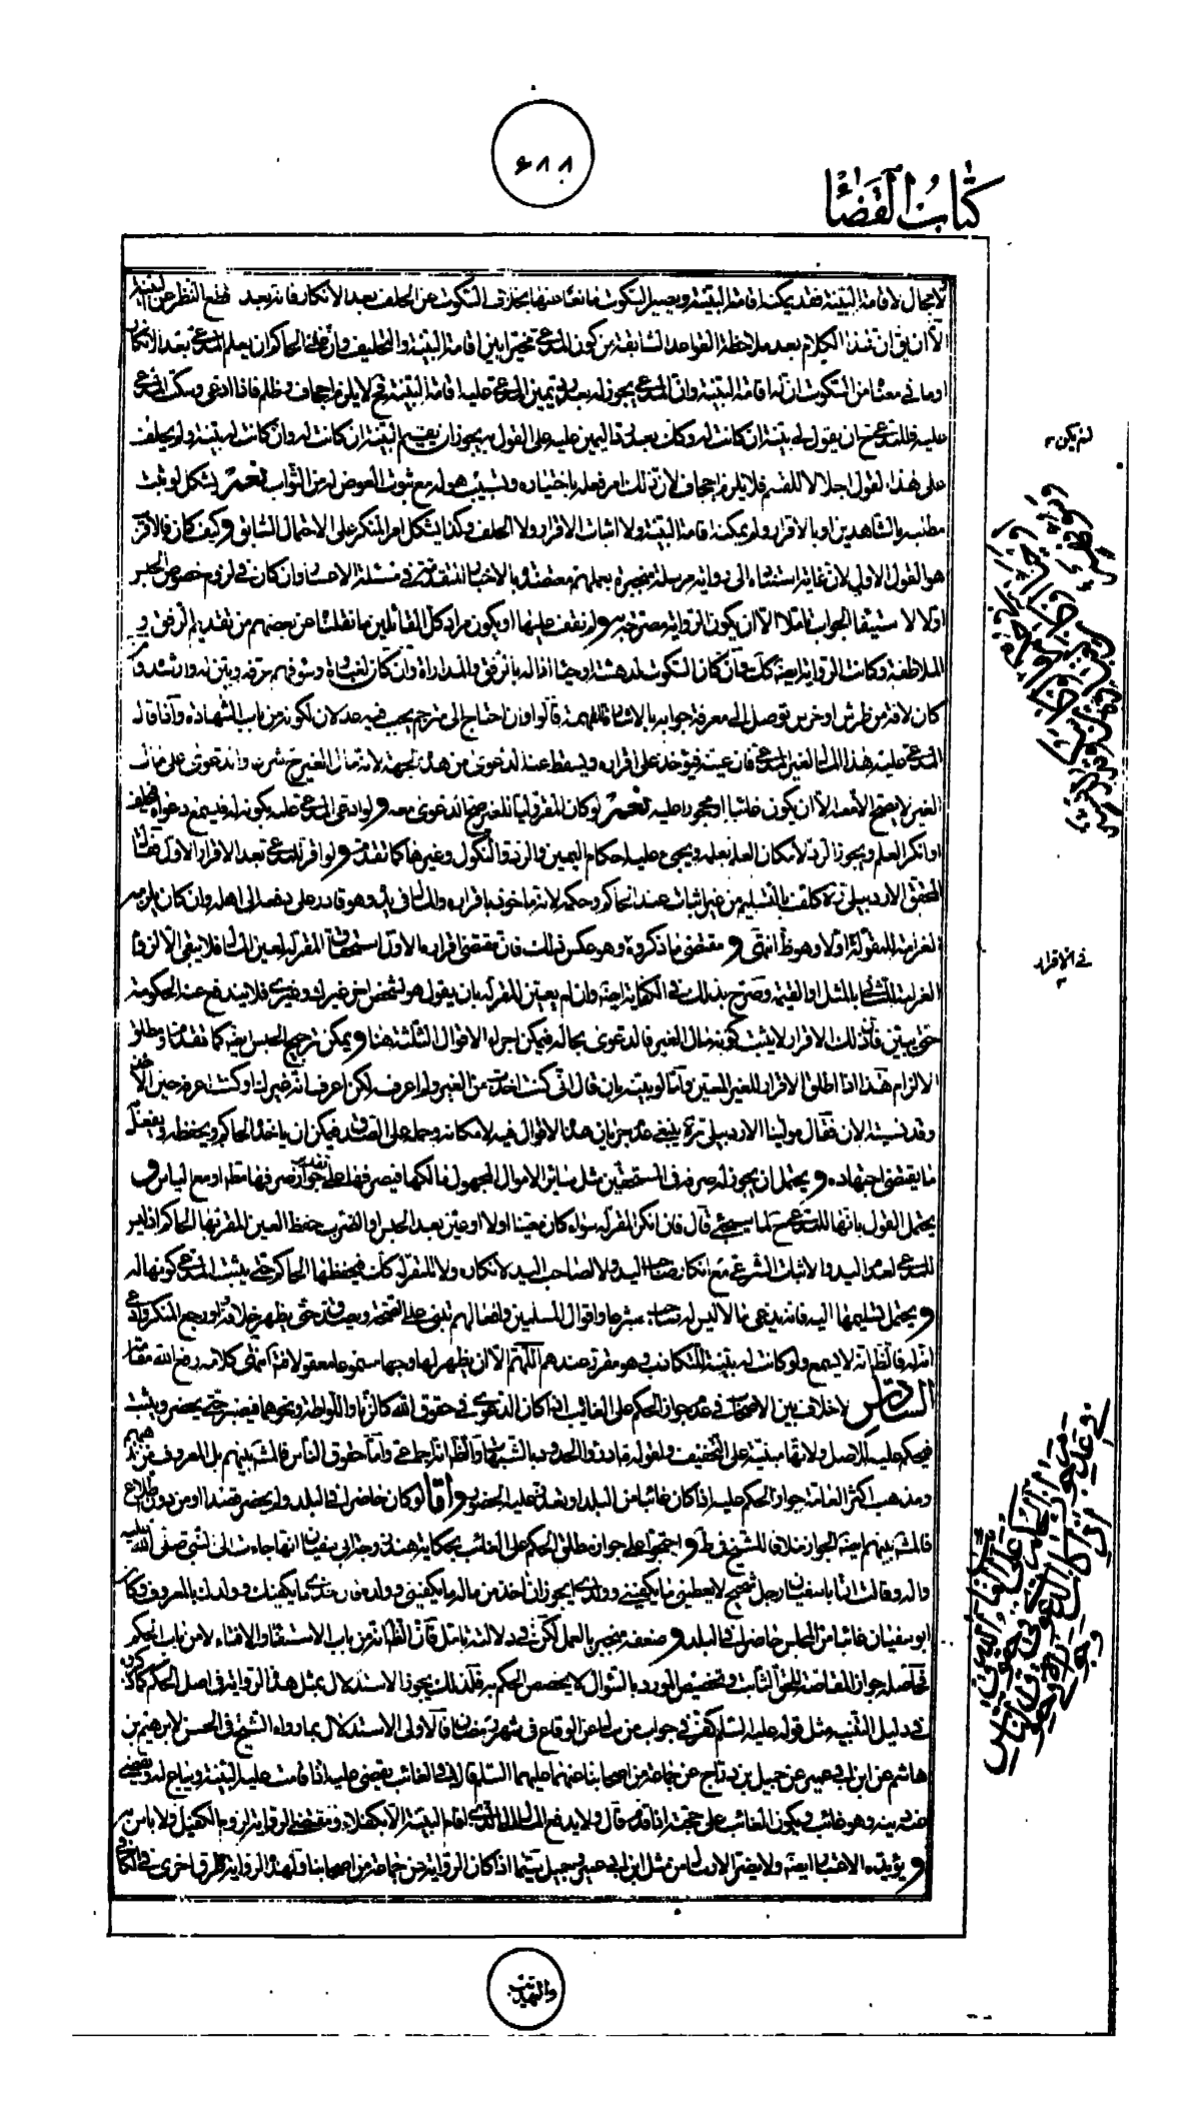 ۶۸۸
كتاب القضاء
لا مجال لاقامة البينة فقد يمكنه اقامة البينة ويصير السكوت مانعا عنها بخلاف السكوت عن الحلف بعد الانكار فانه بعد قطع النظر عن البينة
الا ان يق ان هذا الكلام بعد ملاحظة القواعد السابقة من كون المدعي مخيرا بين اقامة البينة والتحليف وان على الحاكم ان يعلم المدعي بعد الانكار
او ما في معناه من السكوت ان له اقامة البينة وان المدعي يجوز له بعد رد يمين المدعي عليه اقامة البينة فح لا يلزم اجحاف وظلم فاذا ادعى وسكت المدعى
عليه فللمدعي ح ان يقول لي بينة ان كانت له وكان بعد رد اليمين عليه على القول به يجوز ان يقيم البينة ان كانت له وان كانت له بينة ولم يحلف
على هذا القول اجلالا للقسم فلا يلزم اجحاف لان ذلك امر فعله باختياره وتسبيب هو له مع ثبوت العوض له من الثواب نعم يشكل لو يثبت
مطلبه بالشاهدين او بالاقرار ولم يمكنه اقامة البينة ولا اثبات الاقرار ولا الحلف وكذا يشكل امر المنكر على الاحتمال السابق وكيف كان فالاقوى
هو القول الاول لان غاية استناده الى رواية مرسلة منجبرة بعملهم معتضدة بالاخبار المتقدمة في مسئلة الاحسان وان كان في لزوم خصوص الحبر
اولا لاستيفاء الجواب تاملا الا ان يكون الرواية مصرحة به ولم نقف عليها او يكون مراد كل القائلين ما نقلنا عن بعضهم من تقديم الرفق و
الملاطفة وكانت الرواية ايضا كك وان كان السكوت لدهشة وحياء ازاله بالرفق والمداراة وان كان لغباوة وسوء فهم عرفه ويبين له وارشده وان
كان لافة من طرش او خرس توصل الى معرفة جوابه بالاشارة المفهمة قالوا وان احتاج الى مترجم يجب فيه عدلان لكونه من باب الشهادة واذا قال
المدعى عليه هذا المال لغير المدعي فان عينه فيؤخذ على اقراره ويسقط عنه الدعوى من هذه الجهة لانه مال الغير ح شرعا والدعوى على مال
الغير لا يصح الا معه الا ان يكون غائبا او محجورا عليه نعم لو كان المقر وليا للغير صح الدعوى معه ولو ادعى المدعي علمه بكونه له فيسمع دعواه فيحلف
او انكر العلم ويجوز الرد لامكان العلم بعلمه ويجيء عليه احكام اليمين والرد والنكول وغيرها كما تقدمت ولو اقر للمدعي بعد الاقرار الاول فقال
المحقق الاردبيلي ره كلفت بالتسليم من غير اثبات عند الحاكم وحكمه لانه ماخوذ باقراره والمال في يده وهو قادر على دفعه الى اهله وان كان يلزمه
الغرامة للمقر له اولا وهو ظ انتهى ومقتضى ما ذكروه وهو عكس ذلك فان مقتضى اقراره بالاول استحقاق المقر له لعين المال فلا يبقى الا لزوم
الغرامة للثاني بالمثل او القيمة وصرح بذلك في الكفاية ايضا وان لم يعين المقر له بان يقول هو لشخص اخر غيرك وغيري فلا يندفع عنه الحكومة
حتى يبين فان ذلك الاقرار لا يثبت كونه مال الغير فالدعوى بحاله فيمكن اجراء الاقوال الثلثة هنا ويمكن ترجيح الحبس ايضا كما تقدمنا ومطلق
الالزام هذا اذا اطلق الاقرار للغير المعين واما لو بينه بان قال اني كنت اخذته من الغير ولم اعرفه لكن اعرف انه غيرك او كنت اعرفه حين الاخذ
وقد نسيته الان فقال مولينا الاردبيلي ره ينبغي عدم جريان هذه الاقوال فيه لامكانه وحمله على الصدق فيمكن ان ياخذه الحاكم ويحفظه ويفعل
ما يقتضي اجتهاده ويحتمل ان يجوز له صرفه في المستحقين مثل سائر الاموال المجهول مالكها فيصرفها على تقدير جواز صرفها مطلقا او مع الياس و
يحتمل القول بانها للمدعي ح لما سيجئ قال فان انكر المقر له سواء كان معينا اولا او عين بعد الحبس او الضرب حفظ العين المقر بها الحاكم اذ ليس
للمدعي لعدم اليد والاثبات الشرعي مع انكار صاحب اليد ولا لصاحب اليد لانكاره ولا للمقر له كك فيحفظها الحاكم حتى يثبت المدعي كونها له
ويحتمل تسليمها اليه فانه يدعي مالا ليس له صاحب بشرعا واقوال المسلمين وافعالهم تبنى على الصحة ويصدق حتى يظهر خلافه او رجع المنكر وادعى
انه له فالظ انه لا يسمع ولو كانت له بينة للتكاذب وهو مقرر عندهم اللهم الا ان يظهر لها وجها مسموعا معقولا فتم انتهى كلامه رفع الله مقامه
السادس لا خلاف بين الاصحاب في عدم جواز الحكم على الغائب اذا كان الدعوى في حقوق الله كالزنا واللواط ونحوهما فيصبر حتى يحضر ويثبت
فيحكم عليه للاصل ولانها مبنية على التخفيف ولقوله ع ادرؤا الحدود بالشبهات والظ انه اجماعي واما حقوق الناس فالمشهور بينهم بل المعروف من مذهبهم
ومذهب اكثر العامة جواز الحكم عليه اذا كان غائبا من البلد او تعذر عليه الحضور واما لو كان حاضرا في البلد ولم يحضر قصدا او من دون اطلاع
فالمشهور بينهم ايضا الجواز خلافا للشيخ في ط واحتجوا على جواز مطلق الحكم على الغائب بحكاية هند زوجة ابي سفيان انها جاءت الى النبي صلى الله عليه
واله وقالت ان ابا سفيان رجل شحيح لا يعطيني ما يكفيني وولدي ايجوز ان اخذ من ماله ما يكفيني وولدي فقال خذي ما يكفيك وولدك بالمعروف وكان
ابو سفيان غائبا من المجلس حاضرا في البلد وضعفه منجبر بالعمل لكن في دلالته تامل فان الظ انه من باب الاستفتاء والافتاء لا من باب الحكم
فحاصله جواز المقاصة للحق الثابت وتخصيص المورد بالسؤال لا يخصص الحكم به فلذلك يجوز الاستدلال بمثل هذه الرواية في اصل الحكم كما ذكروه
في دليل التنبيه مثل قوله عليه السلم كفر في جواب من سال عن الوقاع في شهر رمضان فالاولى الاستدلال بما رواه الشيخ في الحسن لابرهيم بن
هاشم عن ابن ابي عمير عن جميل بن دراج عن جماعة من اصحابنا عنهما عليهما السلم قال الغائب يقضى عليه اذا قامت عليه البينة ويباع ماله ويقضى
عنه دينه وهو غائب ويكون الغائب على حجته اذا قدم قال ولا يدفع المال الى الذي اقام البينة الا بكفلاء ومقتضى الرواية لزوم الكفيل ولا باس به
ويؤيده الاعتبار ايضا ولا يضر الارسال من مثل ابن ابي عمير وجميل سيما اذا كان الرواية عن جماعة من اصحابنا ولهذه الرواية طرق اخرى في الكافي
والتهذيب
لم يكن
في الاقرار